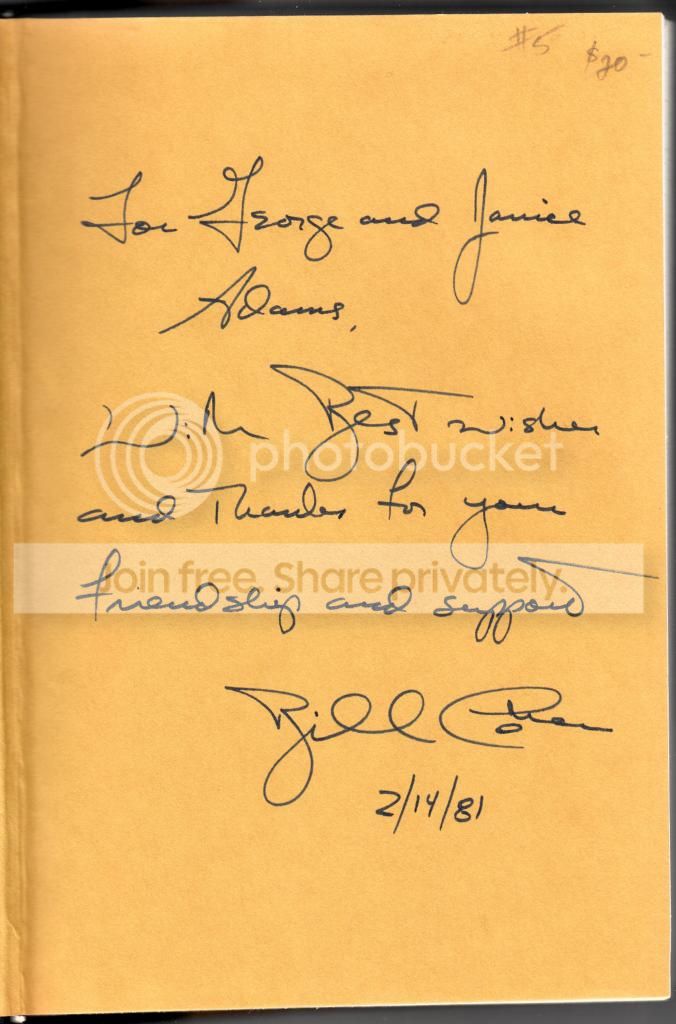 #5 $20-
For George and Janice
Adams,
With Best wishes
photobucket
and Thanks for your
Join free. Share privately.
friendship and support
Bill Cohen
2/14/81